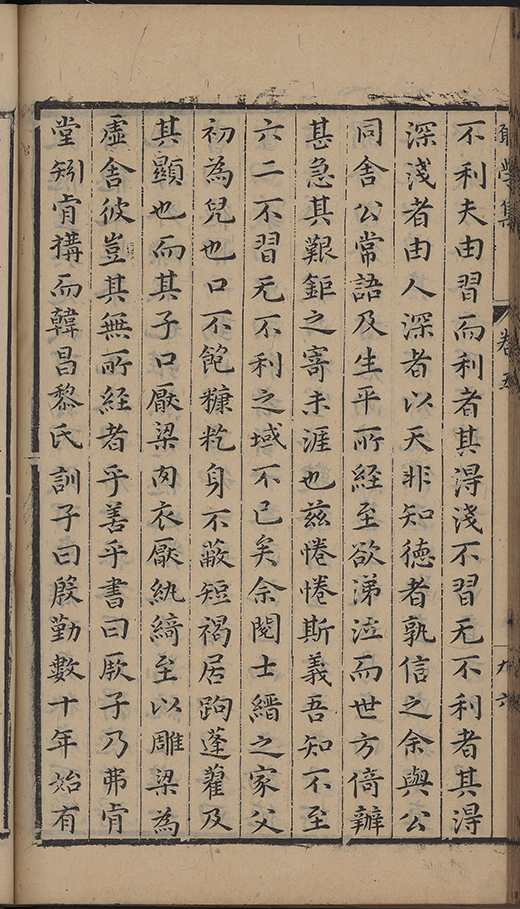 學集 卷五 九六
不利夫由習而利者其淂淺不習无不利者其淂
深淺者由人深者以天非知徳者孰信之余與公
同舍公常語及生平所経至欲涕泣而世方倚辦
甚急其艱鉅之寄未涯也兹惓惓斯義吾知不至
六二不習无不利之域不已矣余閱士縉之家父
初為兒也口不飽糠籺身不蔽短褐居跔蓬藋及
其顯也而其子口厭梁肉衣厭紈綺至以雕梁為
虛舍彼豈其無所経者乎善乎書曰厥子乃弗肯
堂矧肯搆而韓昌黎氏訓子曰殷勤數十年始有